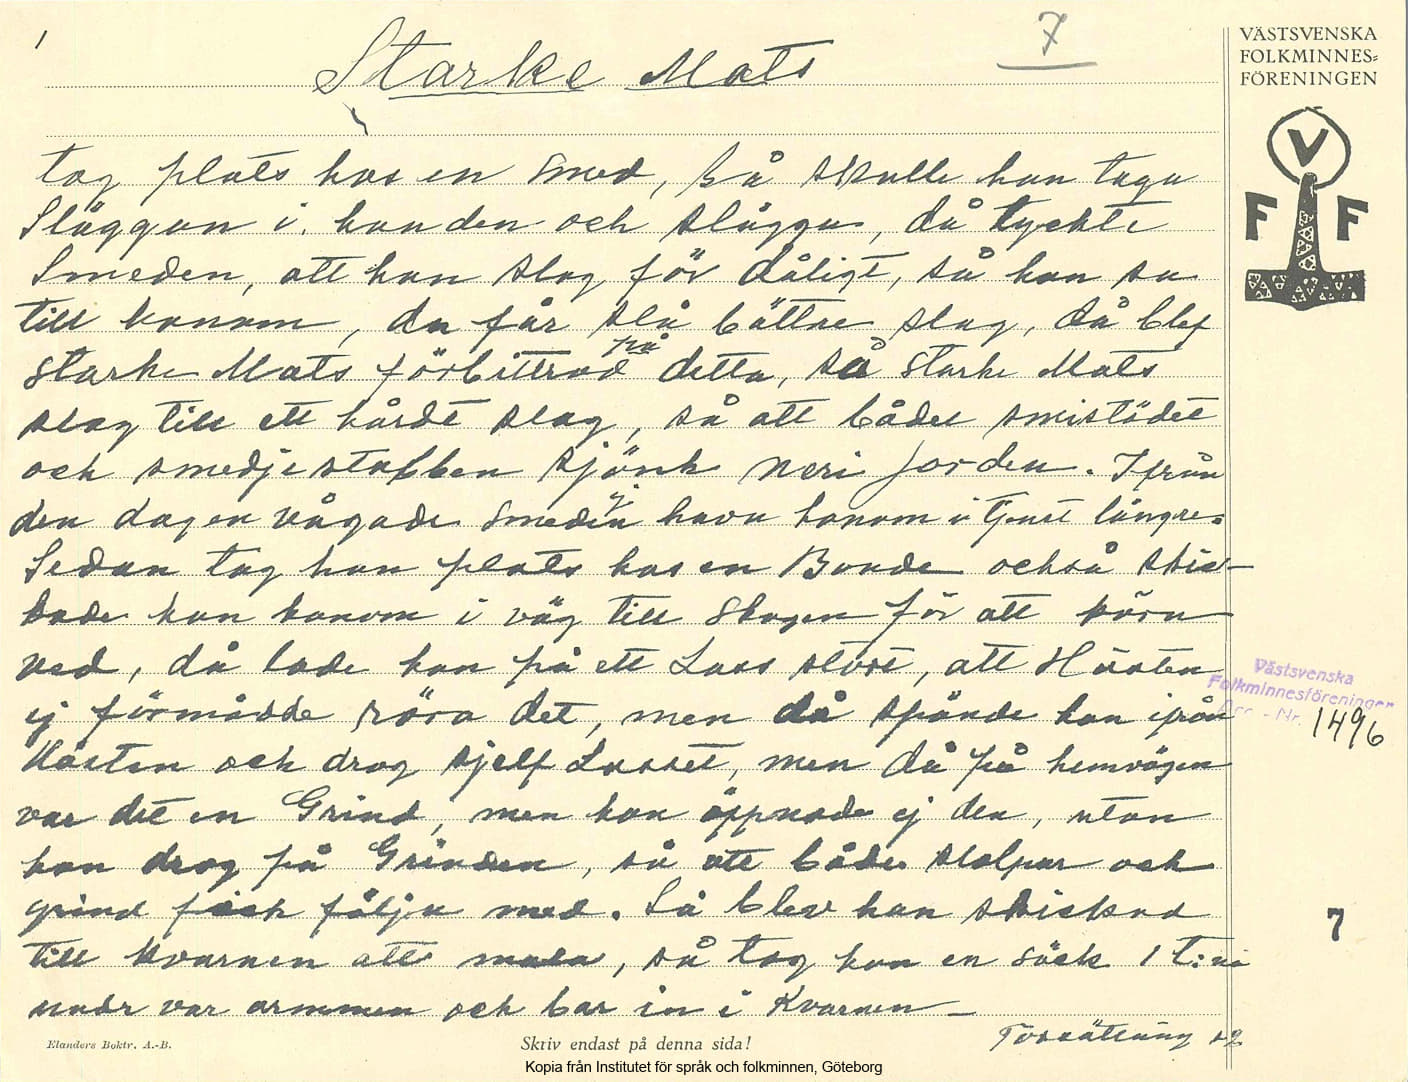 1
7
Starke Mats
VÄSTSVENSKA
FOLKMINNES=
FÖRENINGEN
V
F F
tog plats hos en Smed, Så skulle han taga
Släggan i handen och slägga, då tyckte
Smeden, att han slog för dåligt, så han sa
till honom, du får slå bättre slag, då blef
på
Starke Mats förbittrad detta, så Starke Mats
slog till ett hårdt slag, så att både smistädet
och smedjestabben sjönk neri jorden. Ifrån
ej
den dagen vågade smeden hava honom i tjenst längre.
Sedan tog han plats hos en Bonde också skic-
kade han honom i väg till Skogen för att köra
ved, då lade han på ett Lass stort, att Hästen
ej förmådde röra det, men då spände han ifrån
Hästen och drog sjelf Lasset, men då på hemvägen
var det en Grind, men han öppnade ej den, utan
han drog på Grinden, så att både stolpar och
grind fick följa med. Så blev han skickad
till kvarnen att mala, så tog han en säck 1 t:na
undr var armmen och bar in i Kvarnen –
Forsättning s2
Västsvenska
Folkminnesföreningen
Acc. - Nr. 1496
7
Elanders Boktr. A.-B.
Skriv endast på denna sida!
Kopia från Institutet för språk och folkminnen, Göteborg